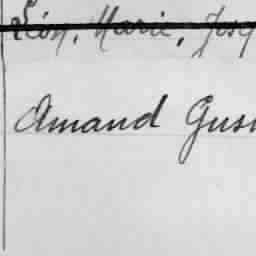 Léon, Marie, Jos
Amand Gus